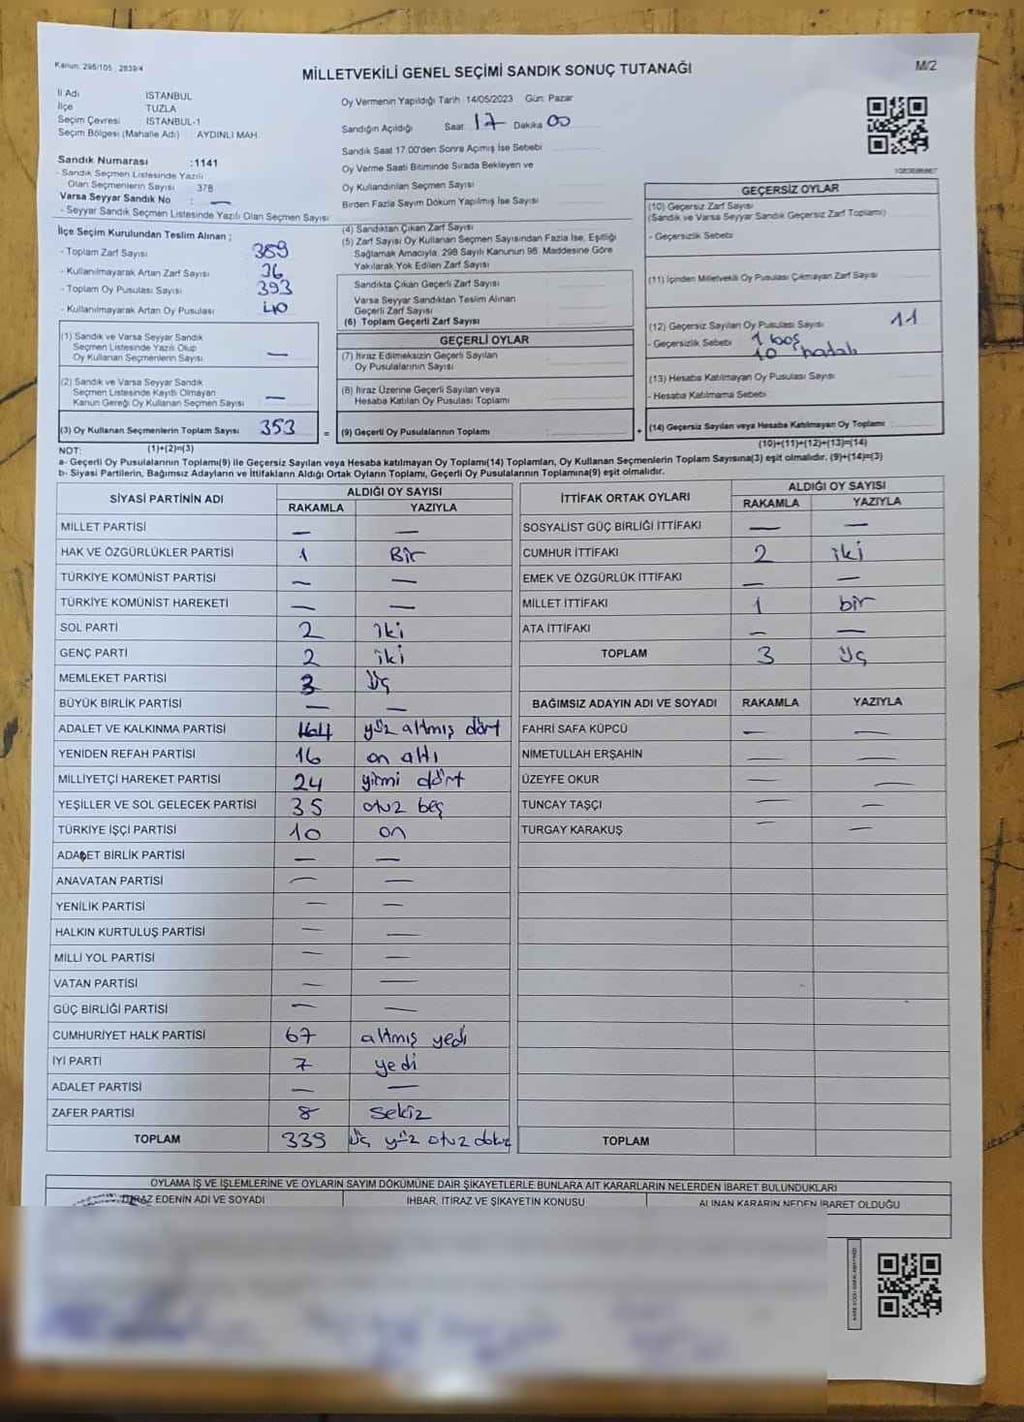 Kanun: 298/105 , 2839/4
MİLLETVEKİLİ GENEL SEÇİMİ SANDIK SONUÇ TUTANAĞI
M/2
İl Adı İSTANBUL
İlçe TUZLA
Seçim Çevresi İSTANBUL-1
Seçim Bölgesi (Mahalle Adı) AYDINLI MAH.
Sandık Numarası :1141
- Sandık Seçmen Listesinde Yazılı
Olan Seçmenlerin Sayısı 378
Varsa Seyyar Sandık No : —
- Seyyar Sandık Seçmen Listesinde Yazılı Olan Seçmen Sayısı
Oy Vermenin Yapıldığı Tarih :14/05/2023 Gün: Pazar
Sandığın Açıldığı Saat 17 Dakika 00
Sandık Saat 17.00'den Sonra Açımış İse Sebebi
Oy Verme Saati Bitiminde Sırada Bekleyen ve
Oy Kullandırılan Seçmen Sayısı
Birden Fazla Sayım Döküm Yapılmış İse Sayısı
İlçe Seçim Kurulundan Teslim Alınan ;
- Toplam Zarf Sayısı 389
- Kullanılmayarak Artan Zarf Sayısı 36
- Toplam Oy Pusulası Sayısı 393
- Kullanılmayarak Artan Oy Pusulası 40
(1) Sandık ve Varsa Seyyar Sandık
Seçmen Listesinde Yazılı Olup
Oy Kullanan Seçmenlerin Sayısı —
(2) Sandık ve Varsa Seyyar Sandık
Seçmen Listesinde Kayıtlı Olmayan
Kanun Gereği Oy Kullanan Seçmen Sayısı —
(3) Oy Kullanan Seçmenlerin Toplam Sayısı 353 =
(1)+(2)=(3)
(4) Sandıktan Çıkan Zarf Sayısı
(5) Zarf Sayısı Oy Kullanan Seçmen Sayısından Fazla İse, Eşitliği
Sağlamak Amacıyla, 298 Sayılı Kanunun 98. Maddesine Göre
Yakılarak Yok Edilen Zarf Sayısı
Sandıkta Çıkan Geçerli Zarf Sayısı
Varsa Seyyar Sandıktan Teslim Alınan
Geçerli Zarf Sayısı
(6) Toplam Geçerli Zarf Sayısı
GEÇERLİ OYLAR
(7) İtiraz Edilmeksizin Geçerli Sayılan
Oy Pusulalarının Sayısı
(8) İtiraz Üzerine Geçerli Sayılan veya
Hesaba Katılan Oy Pusulası Toplamı
(9) Geçerli Oy Pusulalarının Toplamı +
GEÇERSİZ OYLAR
(10) Geçersiz Zarf Sayısı
(Sandık ve Varsa Seyyar Sandık Geçersiz Zarf Toplamı)
- Geçersizlik Sebebi
(11) İçinden Milletvekili Oy Pusulası Çıkmayan Zarf Sayısı
(12) Geçersiz Sayılan Oy Pusulası Sayısı 11
- Geçersizlik Sebebi 1 boş
10 hatalı
(13) Hesaba Katılmayan Oy Pusulası Sayısı
- Hesaba Katılmama Sebebi
(14) Geçersiz Sayılan veya Hesaba Katılmayan Oy Toplamı
(10)+(11)+(12)+(13)=(14)
NOT:
a- Geçerli Oy Pusulalarının Toplamı(9) ile Geçersiz Sayılan veya Hesaba katılmayan Oy Toplamı(14) Toplamları, Oy Kullanan Seçmenlerin Toplam Sayısına(3) eşit olmalıdır. (9)+(14)=(3)
b- Siyasi Partilerin, Bağımsız Adayların ve İttifakların Aldığı Ortak Oyların Toplamı, Geçerli Oy Pusulalarının Toplamına(9) eşit olmalıdır.
SİYASİ PARTİNİN ADI ALDIĞI OY SAYISI
RAKAMLA YAZIYLA
MİLLET PARTİSİ — —
HAK VE ÖZGÜRLÜKLER PARTİSİ 1 Bir
TÜRKİYE KOMÜNİST PARTİSİ — —
TÜRKİYE KOMÜNİST HAREKETİ — —
SOL PARTİ 2 iki
GENÇ PARTİ 2 iki
MEMLEKET PARTİSİ 3 üç
BÜYÜK BİRLİK PARTİSİ — —
ADALET VE KALKINMA PARTİSİ 164 yüz altmış dört
YENİDEN REFAH PARTİSİ 16 on altı
MİLLİYETÇİ HAREKET PARTİSİ 24 yirmi dört
YEŞİLLER VE SOL GELECEK PARTİSİ 35 otuz beş
TÜRKİYE İŞÇİ PARTİSİ 10 on
ADALET BİRLİK PARTİSİ — —
ANAVATAN PARTİSİ — —
YENİLİK PARTİSİ — —
HALKIN KURTULUŞ PARTİSİ — —
MİLLİ YOL PARTİSİ — —
VATAN PARTİSİ — —
GÜÇ BİRLİĞİ PARTİSİ — —
CUMHURİYET HALK PARTİSİ 67 altmış yedi
İYİ PARTİ 7 yedi
ADALET PARTİSİ — —
ZAFER PARTİSİ 8 sekiz
TOPLAM 339 üç yüz otuz dokuz
İTTİFAK ORTAK OYLARI ALDIĞI OY SAYISI
RAKAMLA YAZIYLA
SOSYALİST GÜÇ BİRLİĞİ İTTİFAKI — —
CUMHUR İTTİFAKI 2 iki
EMEK VE ÖZGÜRLÜK İTTİFAKI — —
MİLLET İTTİFAKI 1 bir
ATA İTTİFAKI — —
TOPLAM 3 üç
BAĞIMSIZ ADAYIN ADI VE SOYADI RAKAMLA YAZIYLA
FAHRİ SAFA KÜPCÜ — —
NİMETULLAH ERŞAHİN — —
ÜZEYFE OKUR — —
TUNCAY TAŞÇI — —
TURGAY KARAKUŞ — —
TOPLAM
OYLAMA İŞ VE İŞLEMLERİNE VE OYLARIN SAYIM DÖKÜMÜNE DAİR ŞİKAYETLERLE BUNLARA AİT KARARLARIN NELERDEN İBARET BULUNDUKLARI
İTİRAZ EDENİN ADI VE SOYADI İHBAR, İTİRAZ VE ŞİKAYETİN KONUSU ALINAN KARARIN NEDEN İBARET OLDUĞU